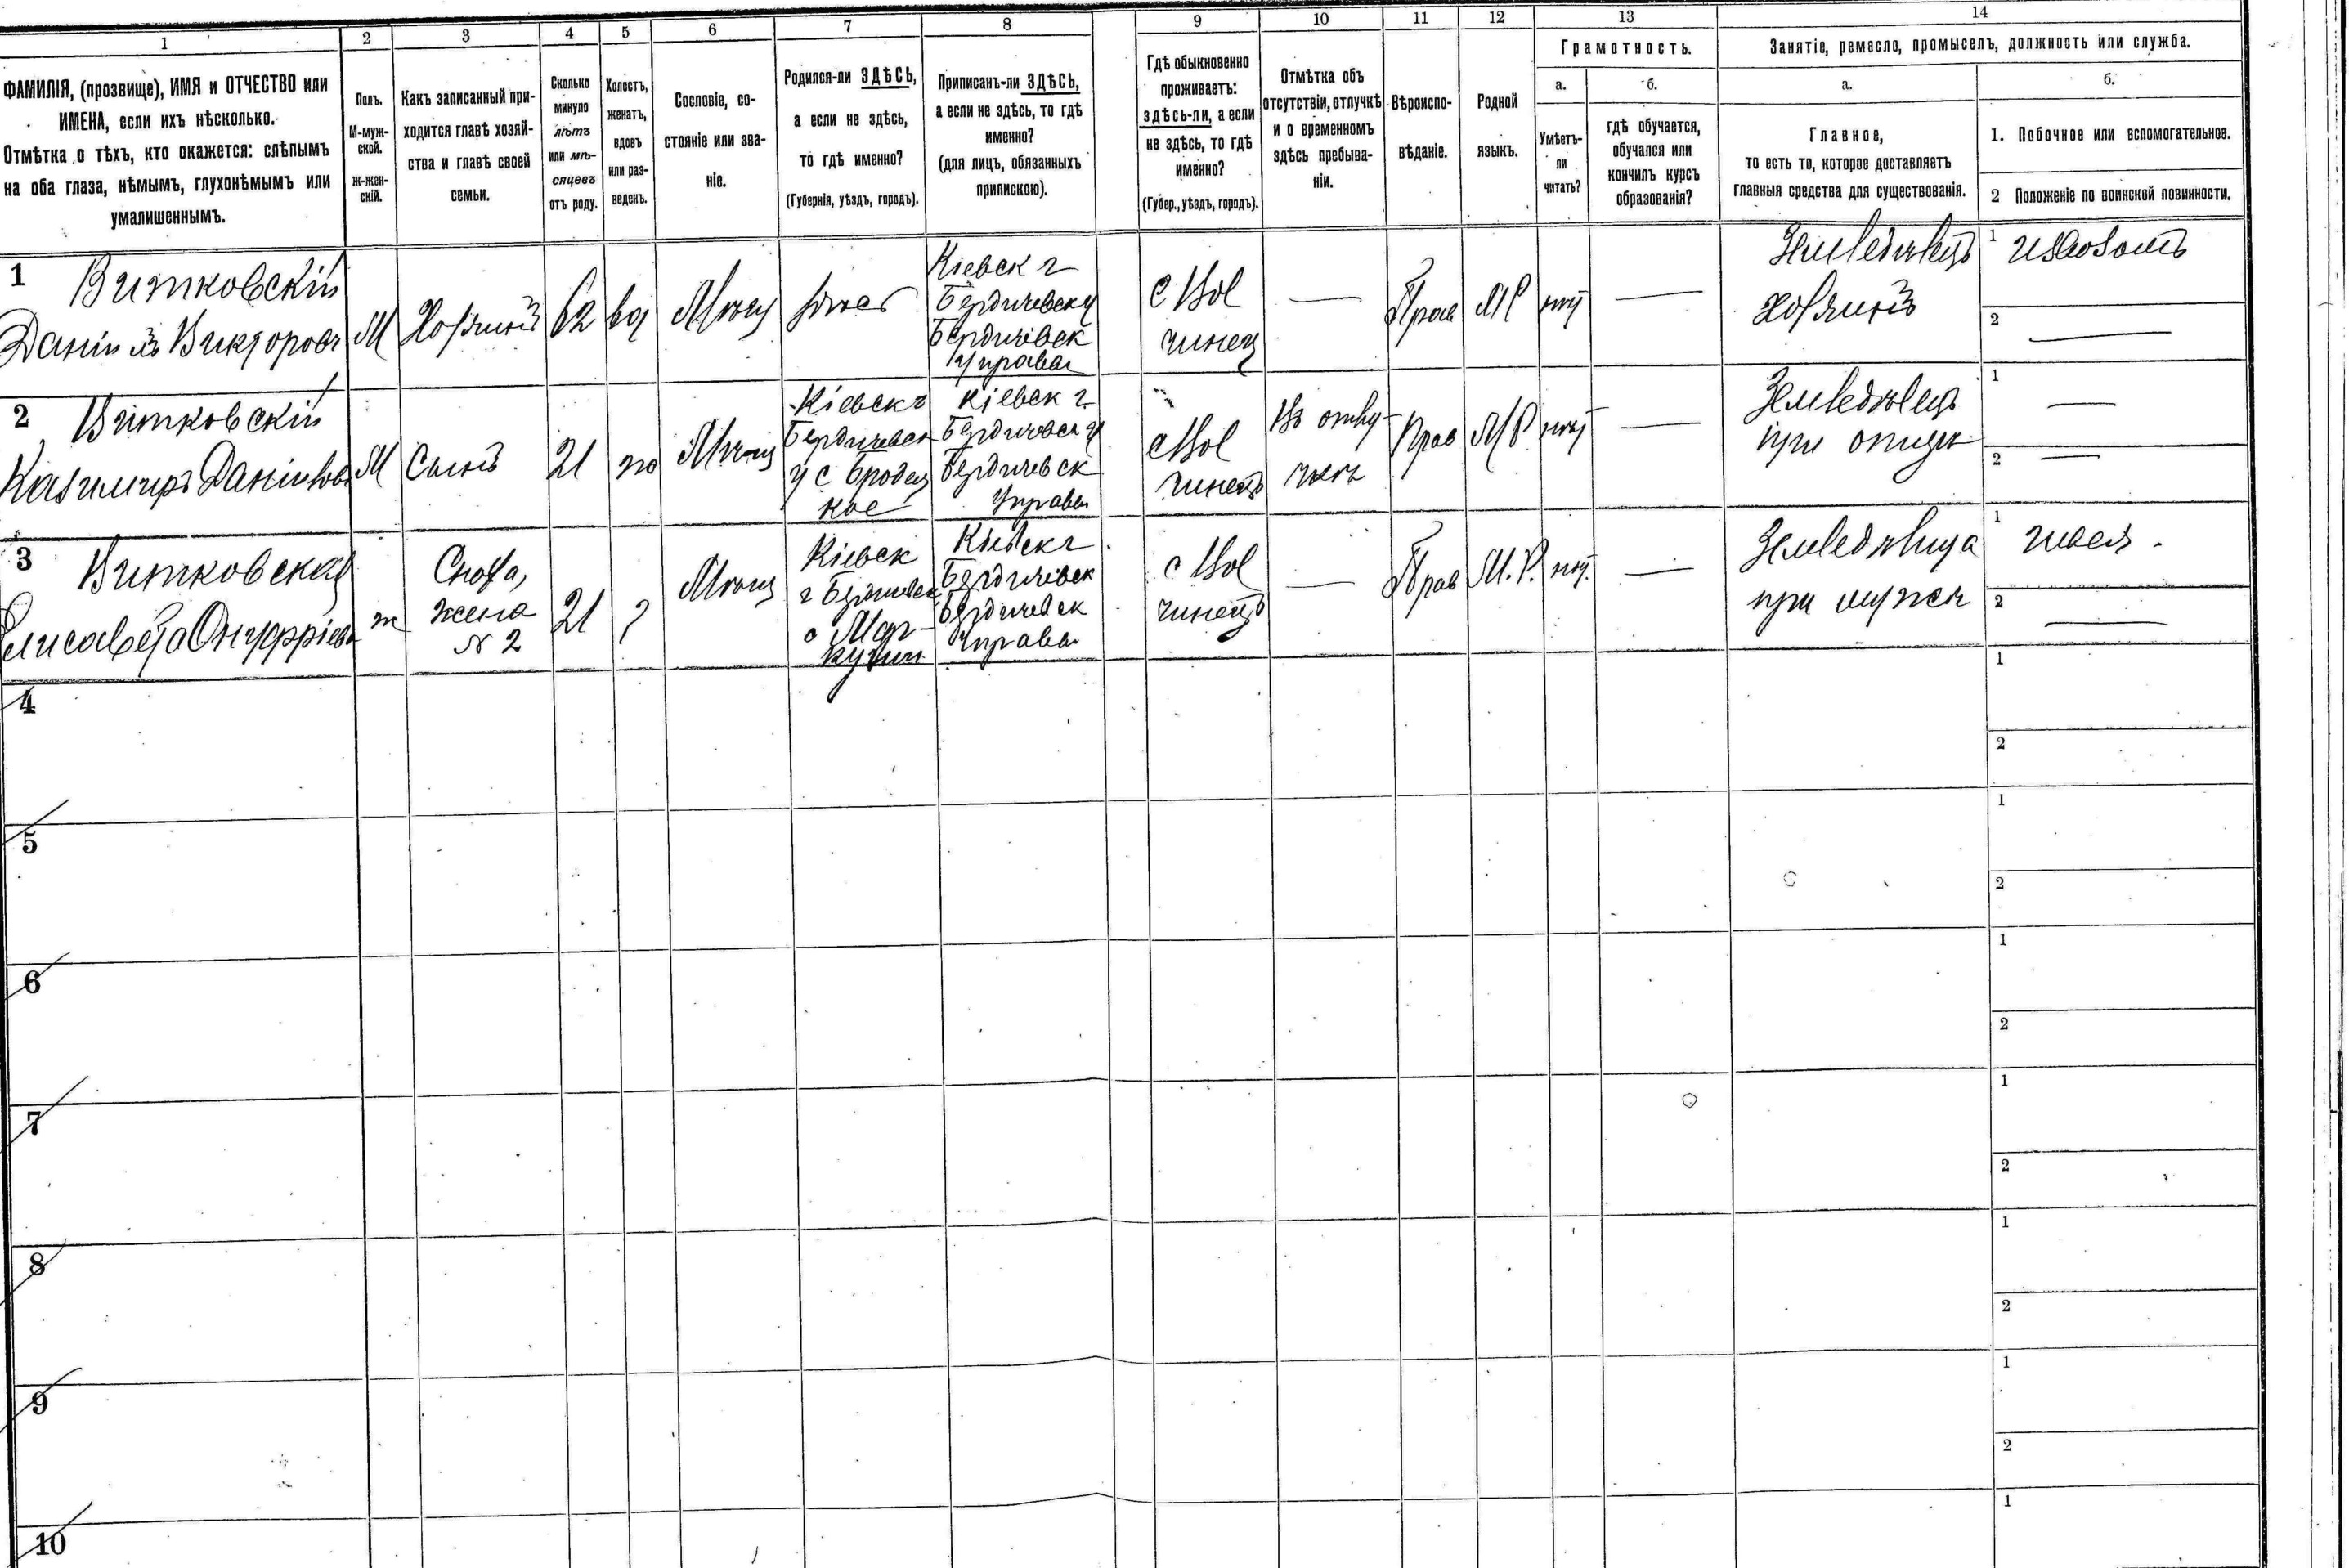 1 2 3 4 5 6 7 8 9 10 11 12 13 14
ФАМИЛІЯ, (прозвище), ИМЯ и ОТЧЕСТВО или
ИМЕНА, если ихъ нѣсколько.
Отмѣтка о тѣхъ, кто окажется: слѣпымъ
на оба глаза, нѣмымъ, глухонѣмымъ или
умалишеннымъ.
Полъ.
М-муж-
ской.
ж-жен-
скій.
Какъ записанный при-
ходится главѣ хозяй-
ства и главѣ своей
семьи.
Сколько
минуло
лѣтъ
или мѣ-
сяцевъ
отъ роду.
Холостъ,
женатъ,
вдовъ
или раз-
веденъ.
Сословіе, со-
стояніе или зва-
ніе.
Родился-ли ЗДѢСЬ,
а если не здѣсь,
то гдѣ именно?
(Губернія, уѣздъ, городъ).
Приписанъ-ли ЗДѢСЬ,
а если не здѣсь, то гдѣ
именно?
(для лицъ, обязанныхъ
припискою).
Гдѣ обыкновенно
проживаетъ:
здѣсь-ли, а если
не здѣсь, то гдѣ
именно?
(Губер., уѣздъ, городъ).
Отмѣтка объ
отсутствіи, отлучкѣ
и о временномъ
здѣсь пребыва-
ніи.
Вѣроиспо-
вѣданіе.
Родной
языкъ.
Грамотность.
а.
Умѣетъ-
ли
читать?
б.
гдѣ обучается,
обучался или
кончилъ курсъ
образованія?
Занятіе, ремесло, промыселъ, должность или служба.
а.
Главное,
то есть то, которое доставляетъ
главныя средства для существованія.
б.
1. Побочное или вспомогательное.
2 Положеніе по воинской повинности.
1 Витковскій
Даніилъ Викторовъ
М
Хозяинъ
62
вд
здѣсь
Кіевск г
Бердичевск у
Бердичевск
Управа
с Вол
чинец
—
Прав
МР
нѣт
—
Земледѣлецъ
хозяинъ
1 извозомъ
2 —
2 Витковскій
Казимиръ Данилов
М
Сынъ
21
Кіевск г
Бердичевск
у с Бродец
кое
Кіевск г.
Бердичевск у
Бердичевск
Управа
с Вол
чинецъ
Въ отлу-
чкѣ
Прав
МР
нѣт
—
Земледѣлецъ
при отцѣ
1 —
2 —
3 Витковская
Елисавета Онуфріева
ж
Сноха,
жена
№ 2
21
Кіевск
г Бердичевск
с Мар-
Кіевск г
Бердичевск
Бердичевск
Управа
с Вол
чинецъ
—
Прав
М.Р.
нѣт.
—
Земледѣлица
при мужѣ
1 швея.
2 —
4
1
2
5
1
2
6
1
2
7
1
2
8
1
2
9
1
2
10
1